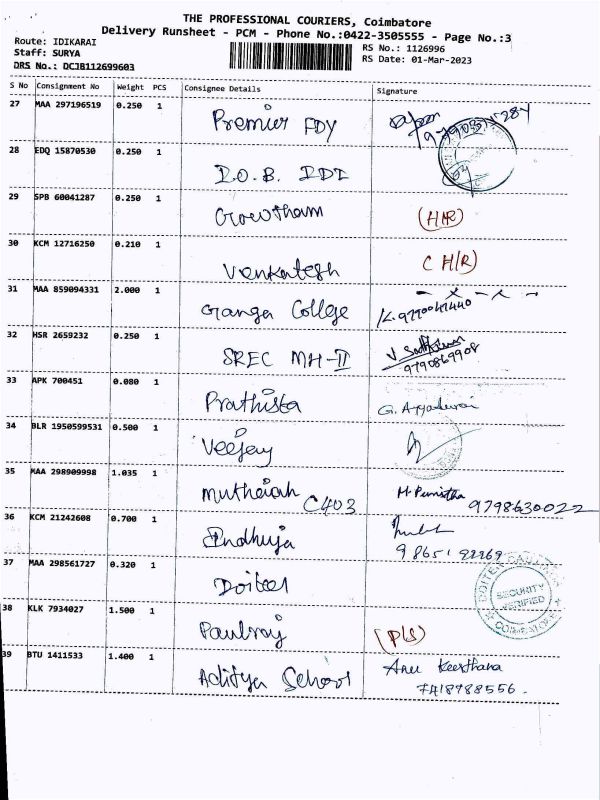 THE PROFESSIONAL COURIERS, Coimbatore
Delivery Runsheet - PCM - Phone No.:0422-3505555 - Page No.:3
Route: IDIKARAI
RS No.: 1126996
Staff: SURYA
RS Date: 01-Mar-2023
DRS No.: DCJB112699603
S No Consignment No Weight PCS Consignee Details Signature
27 MAA 297196519 0.250 1 Premier FDY
28 EDQ 15870530 0.250 1 I.O.B. IDI
29 SPB 60041287 0.250 1 Growtham (H/R)
30 KCM 12716250 0.210 1 Venkatesh (H/R)
31 MAA 859094331 2.000 1 Ganga College
32 HSR 2659232 0.250 1 SREC MH-II 9790869908
33 APK 700451 0.080 1 Prathista G.
34 BLR 1950599531 0.500 1 Veejay
35 MAA 298909998 1.035 1 Muthaiah C403 M. Punitha 9798630022
36 KCM 21242608 0.700 1 Indhuja
37 MAA 298561727 0.320 1 Doitel SECURITY VERIFIED
38 KLK 7934027 1.500 1 Paulraj (P/S)
39 BTU 1411533 1.400 1 Aditya School Anu Keerthana
7418988556.